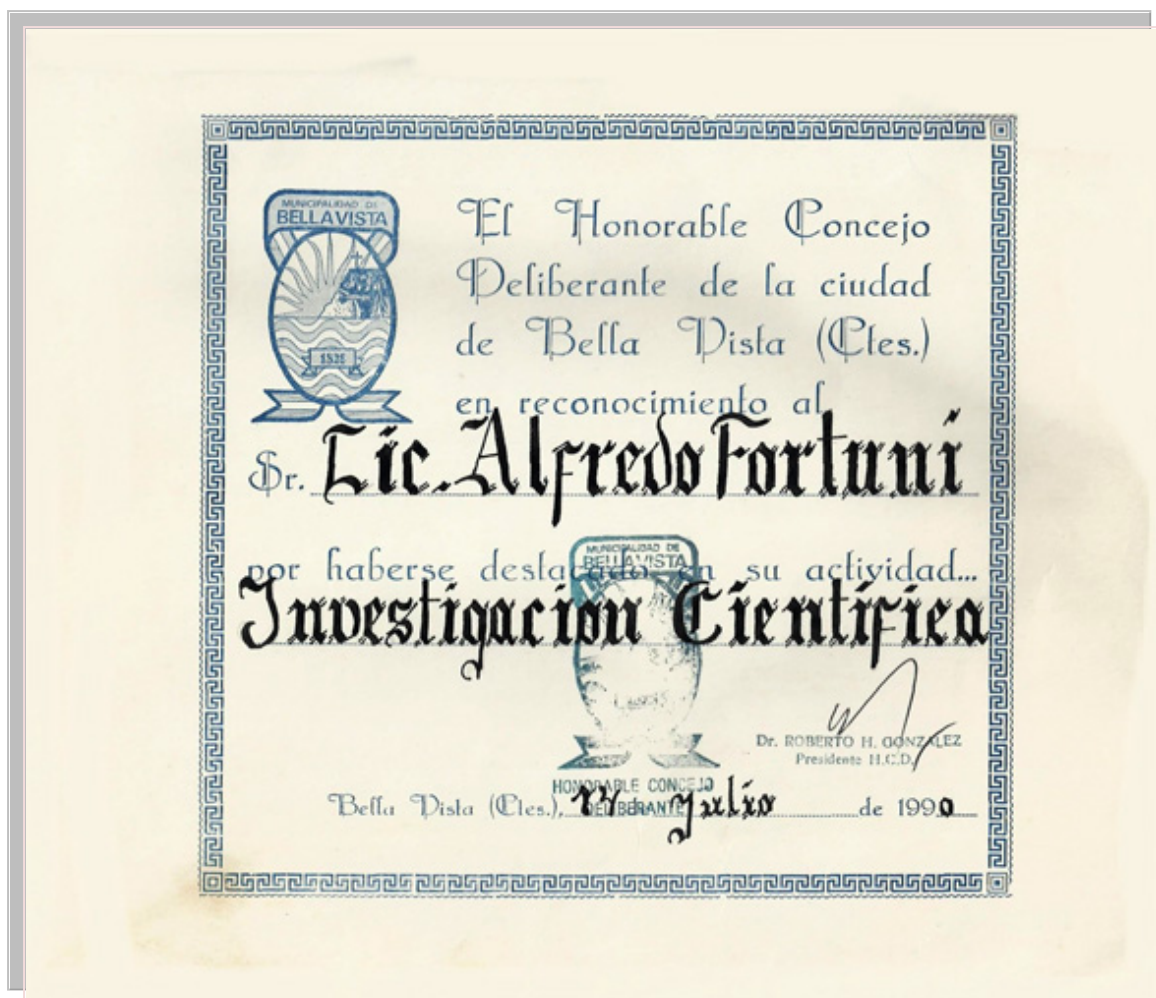 MUNICIPALIDAD DE
BELLA VISTA
El Honorable Concejo
Deliberante de la ciudad
de Bella Vista (Ctes.)
en reconocimiento al
Sr. Lic. Alfredo Fortuni
por haberse destacado en su actividad...
Investigacion Científica
MUNICIPALIDAD DE
BELLA VISTA
Dr. ROBERTO H. GONZALEZ
Presidente H.C.D.
HONORABLE CONCEJO
DELIBERANTE
Bella Vista (Ctes.), Julio de 1990